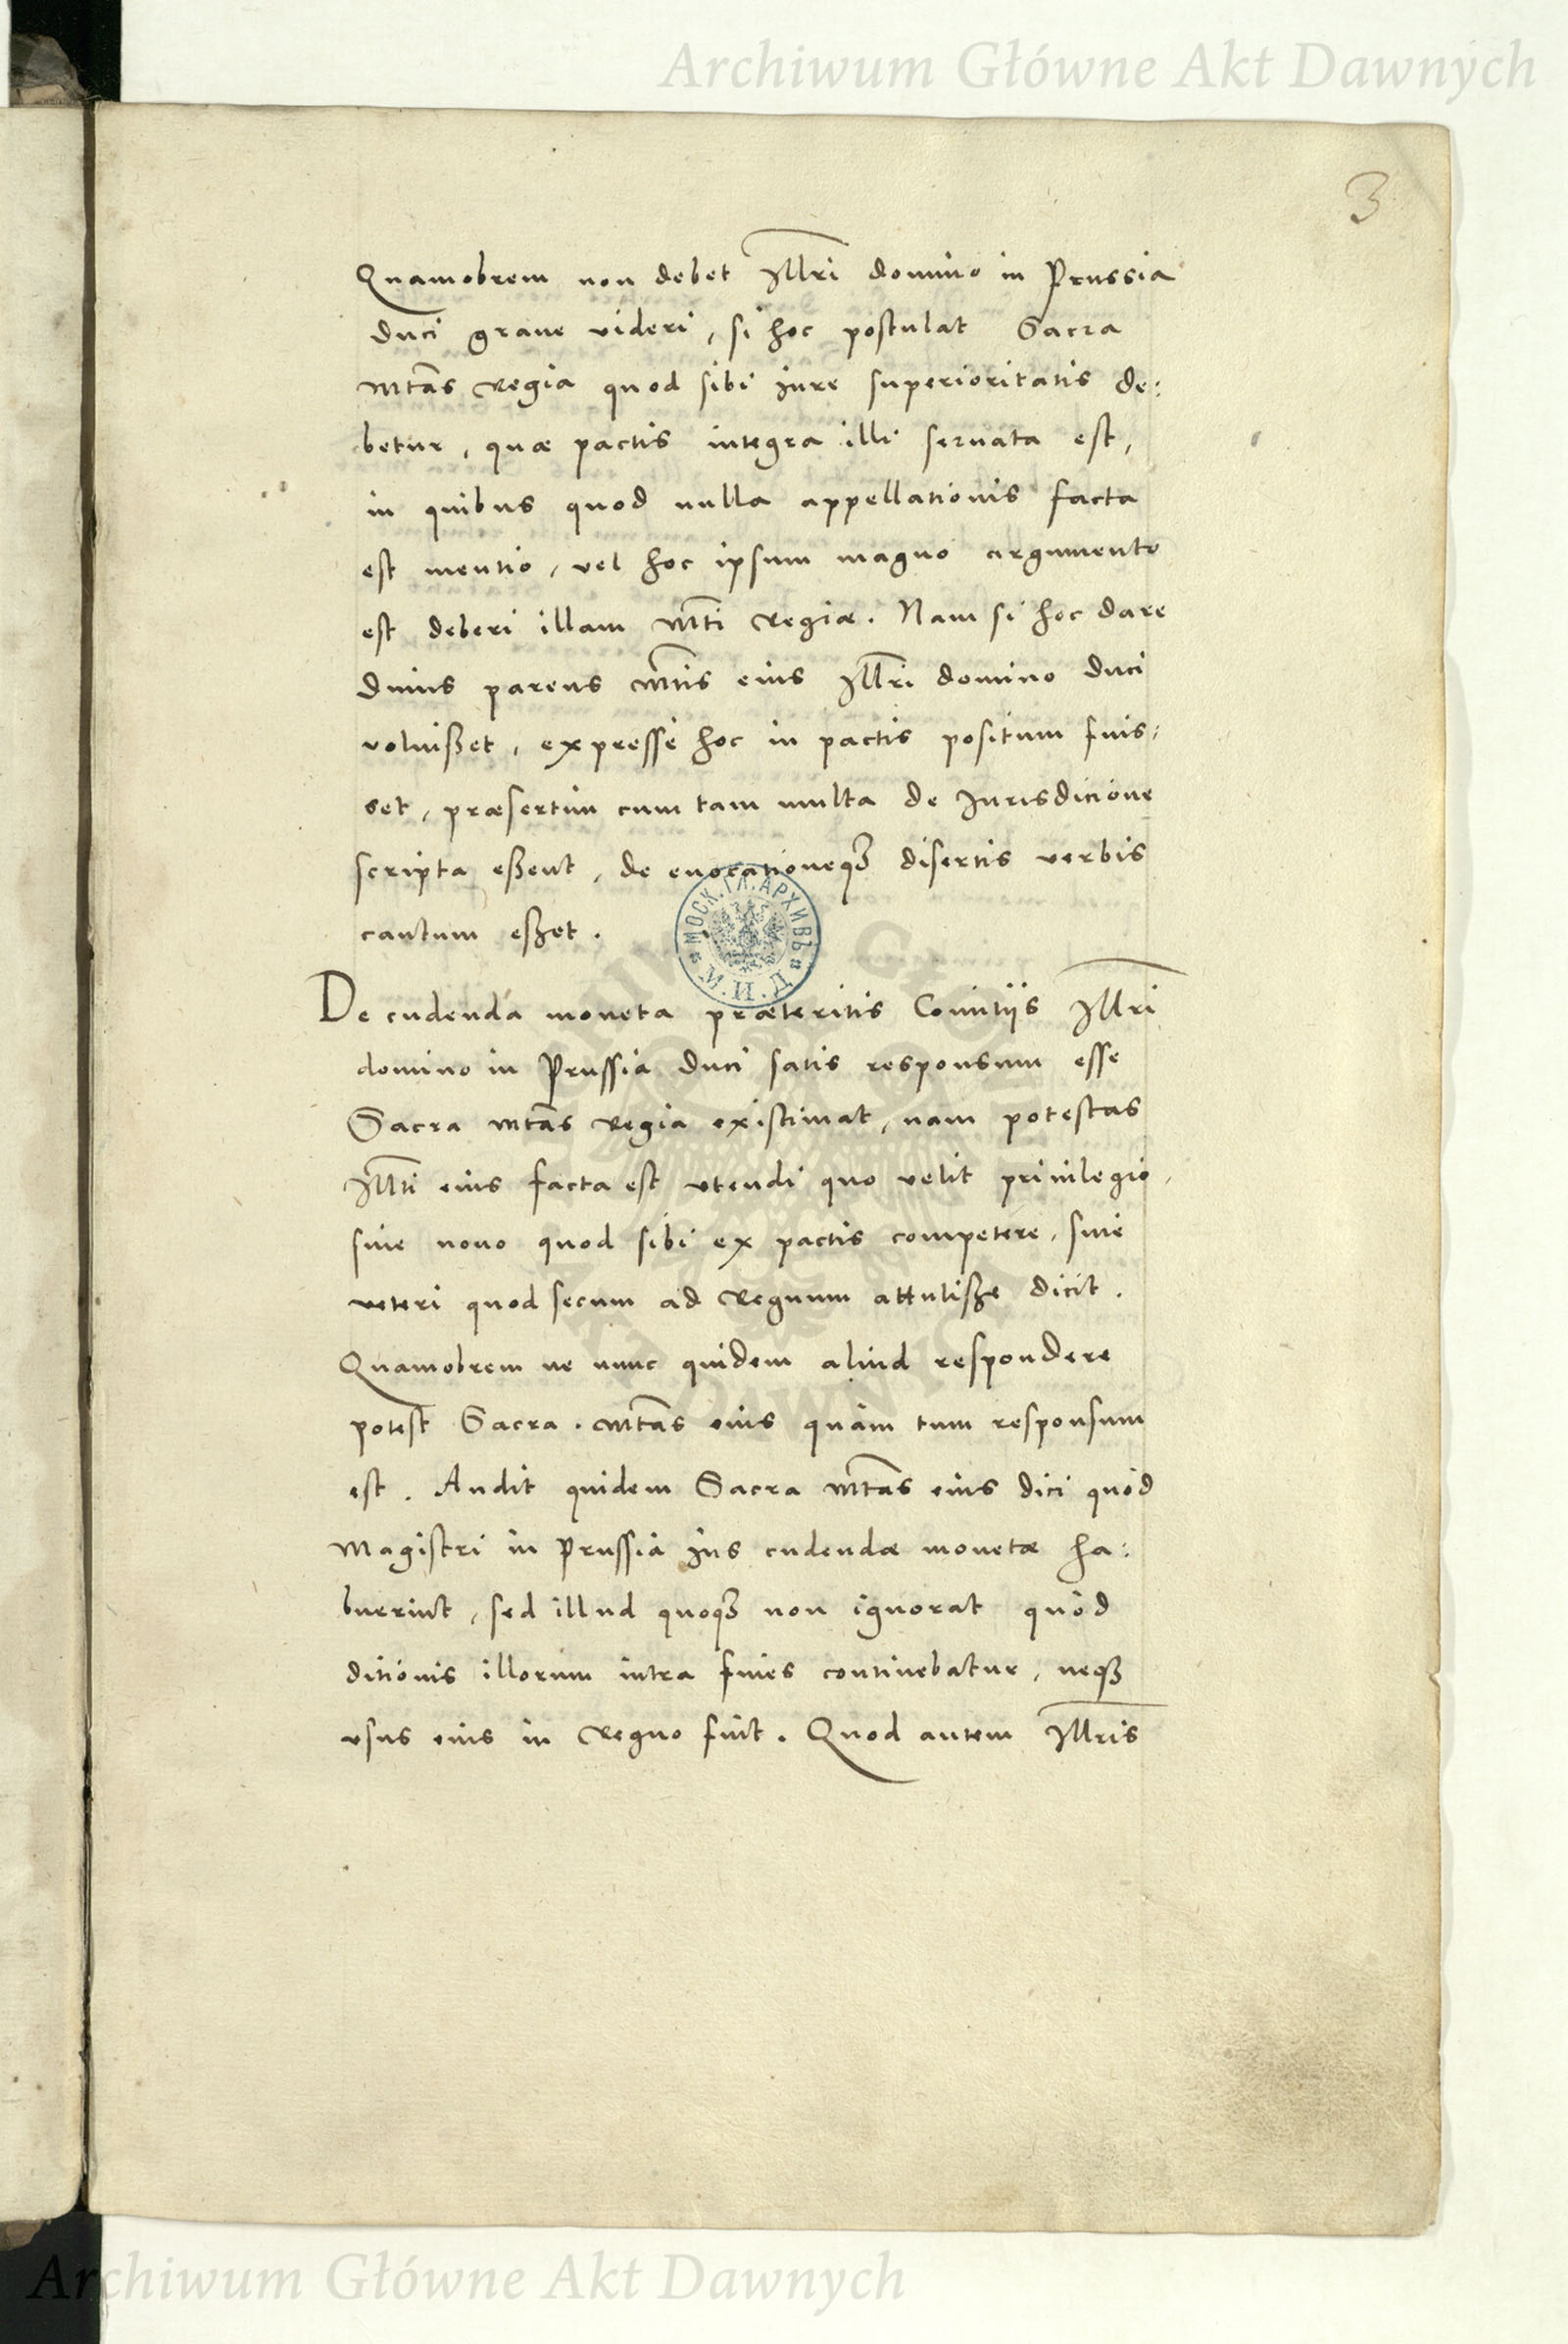 Archiwum Główne Akt Dawnych
3
Quamobrem non debet Illri domino in Prussia
duci graue videri, si hoc postulat Sacra
Mtas Regia quod sibi iure superioritatis de:
betur, quæ pactis integra illi seruata est,
in quibus quod nulla appellationis facta
est mentio, vel hoc ipsum magno argumento
est deberi illam Mti Regiæ. Nam si hoc dare
Diuus parens Mtis eius Illri domino duci
voluißet, expresse hoc in pactis positum fuis:
set, præsertim cum tam multa de Iurisdicione
scripta eßent, de euocationeq3 disertis verbis
cautum eßet.
МОСК.ГЛ.АРХИВЪ
М.И.Д.
De cudenda moneta præteritis Comitijs Illri
domino in Prussia duci satis responsum esse
Sacra Mtas Regia existimat, nam potestas
Illti eius facta est vtendi quo velit priuilegio,
siue nouo quod sibi ex pactis competere, siue
veteri quod secum ad Regnum attulisse dicit.
Quamobrem ne nunc quidem aliud respondere
potest Sacra. Mtas eius quàm tum responsum
est. Audit quidem Sacra Mtas eius dici quòd
Magistri in Prussia ius cudendæ monetæ ha:
buerint, sed illud quoq3 non ignorat quòd
ditionis illorum intra fines continebatur, neq3
vsus eius in Regno fuit. Quod autem Illris
Archiwum Główne Akt Dawnych